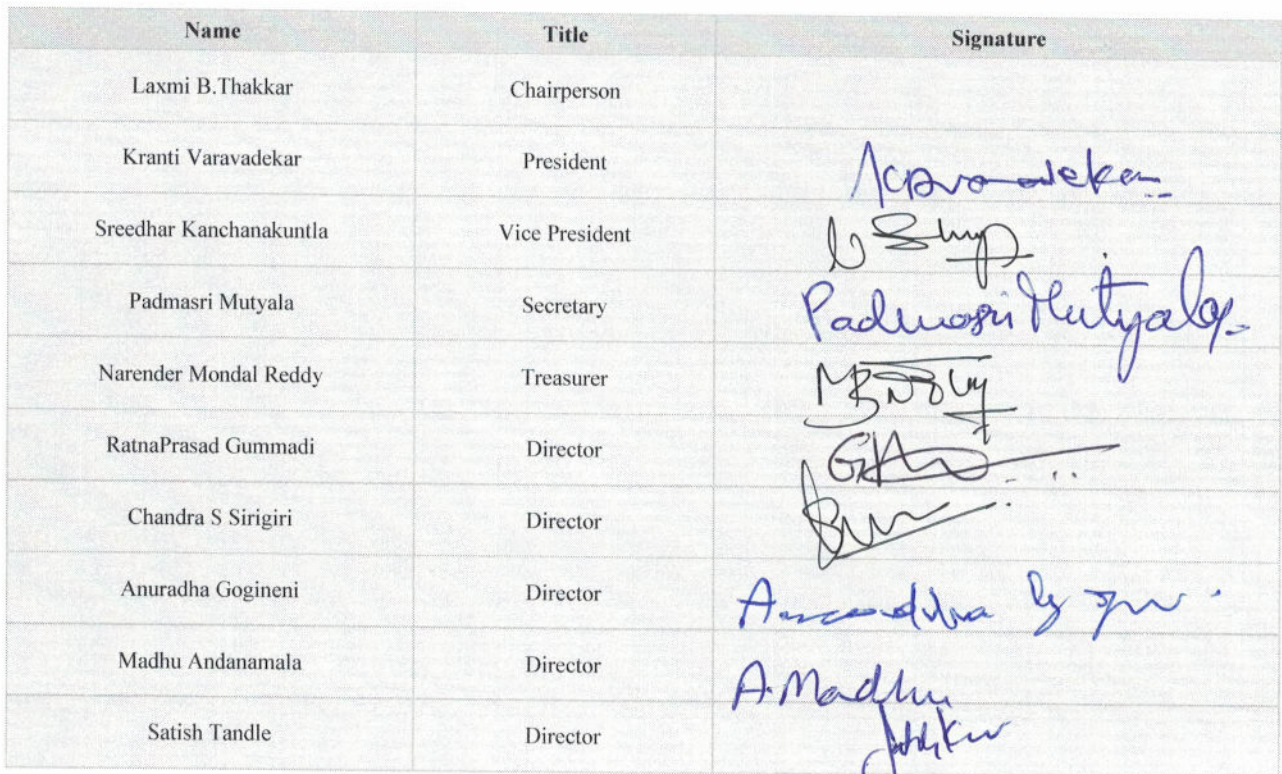 Name Title Signature
Laxmi B.Thakkar Chairperson
Kranti Varavadekar President
Sreedhar Kanchanakuntla Vice President
Padmasri Mutyala Secretary Padmasri Mutyala
Narender Mondal Reddy Treasurer
RatnaPrasad Gummadi Director
Chandra S Sirigiri Director
Anuradha Gogineni Director
Madhu Andanamala Director A.Madhu
Satish Tandle Director